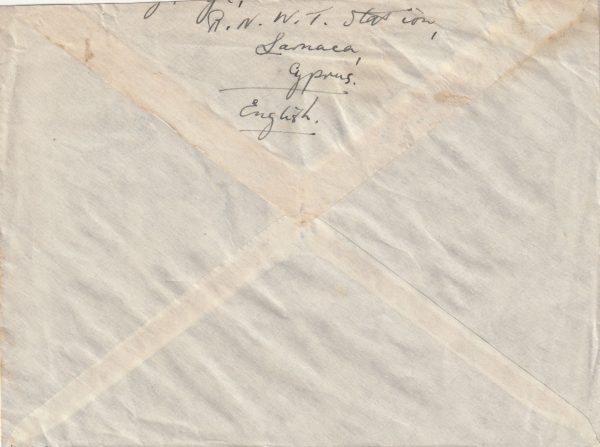 R. N. W. T. Station,
Larnaca,
Cyprus.
English.